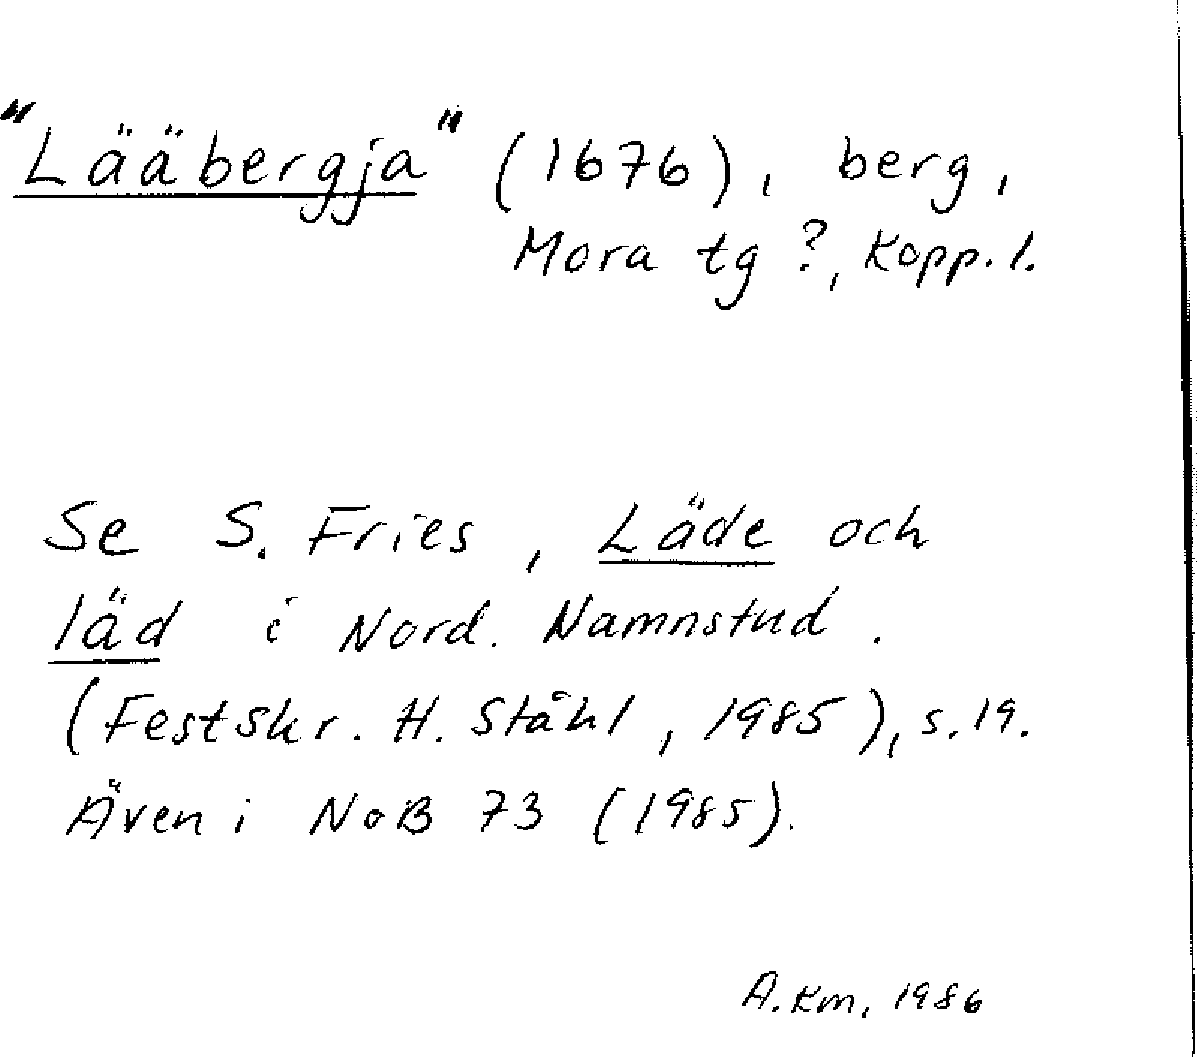 "Lääbergja" (1676), berg,
Mora tg ?, Kopp. l.
Se S. Fries, Läde och
läd i Nord. Namnstud.
(Festskr. H. Ståhl, 1985), s. 19.
Även i NoB 73 (1985).
A. Km, 1986